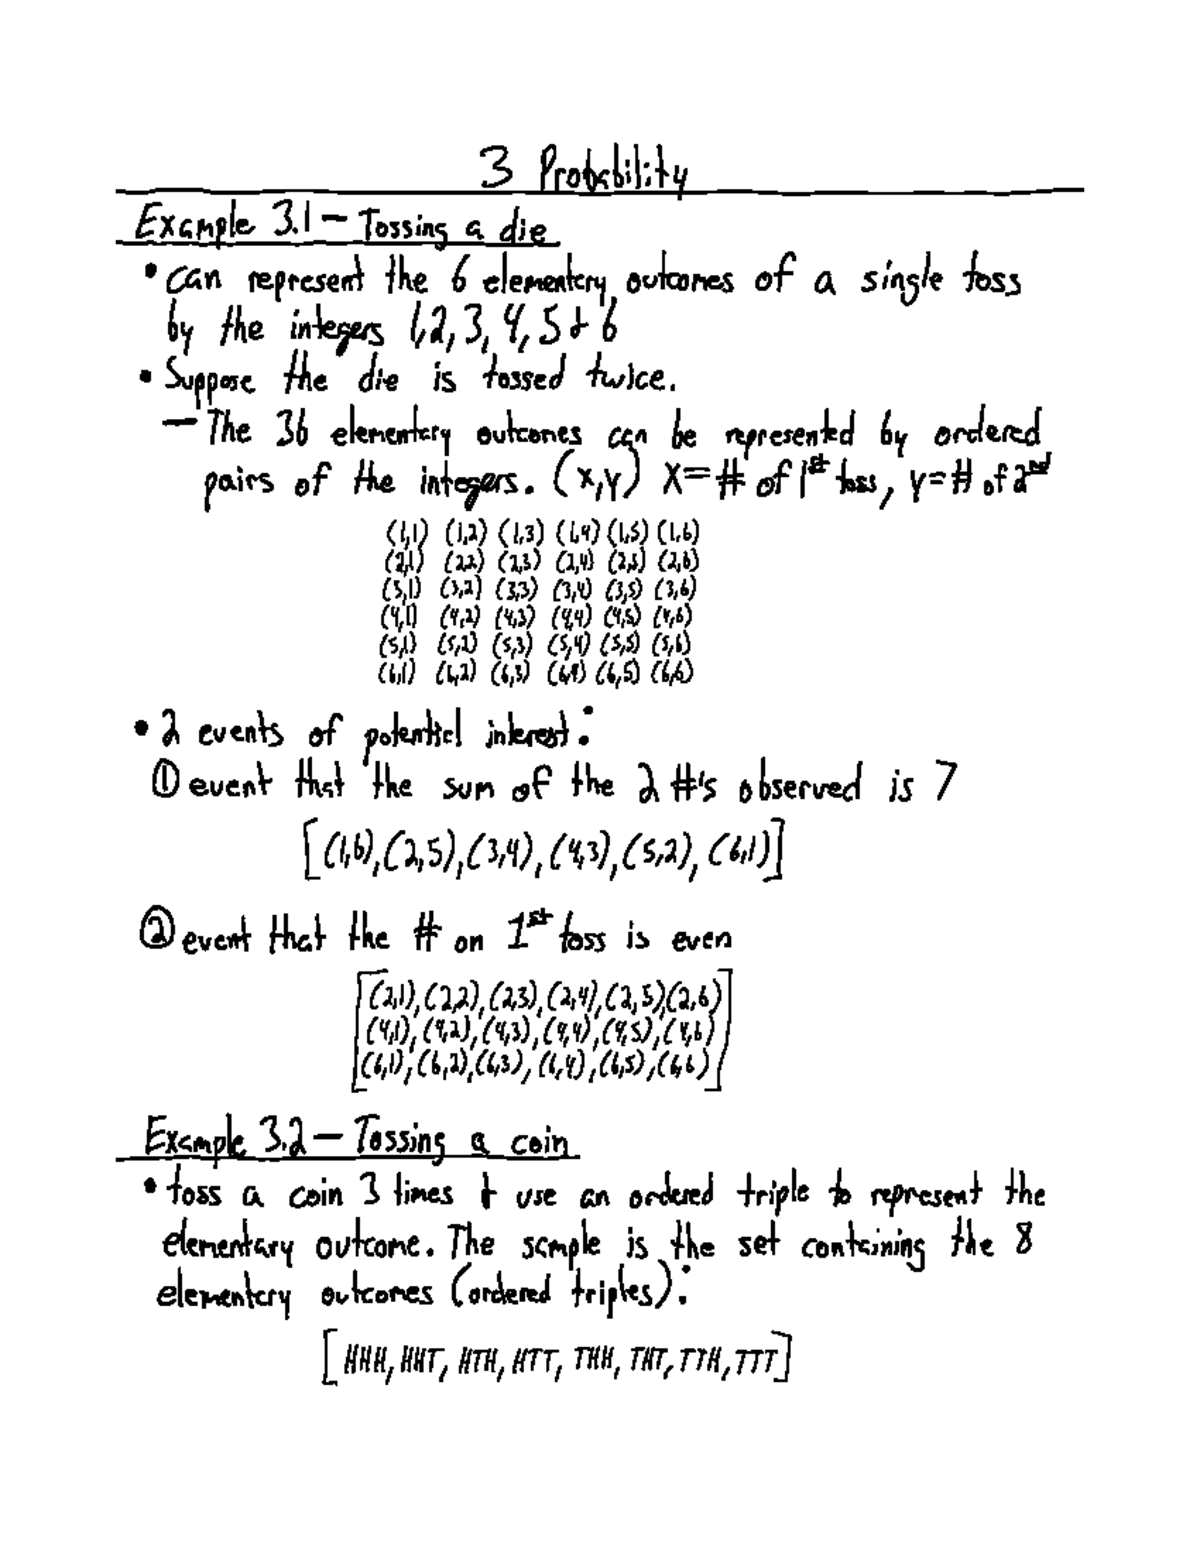 3 Probability
Example 3.1 — Tossing a die
• can represent the 6 elementary outcomes of a single toss
by the integers 1, 2, 3, 4, 5 & 6
• Suppose the die is tossed twice.
— The 36 elementary outcomes can be represented by ordered
pairs of the integers. (x,y) x=# of 1st toss, y=# of 2nd
(1,1) (1,2) (1,3) (1,4) (1,5) (1,6)
(2,1) (2,2) (2,3) (2,4) (2,5) (2,6)
(3,1) (3,2) (3,3) (3,4) (3,5) (3,6)
(4,1) (4,2) (4,3) (4,4) (4,5) (4,6)
(5,1) (5,2) (5,3) (5,4) (5,5) (5,6)
(6,1) (6,2) (6,3) (6,4) (6,5) (6,6)
• 2 events of potential interest:
① event that the sum of the 2 #'s observed is 7
[(1,6), (2,5), (3,4), (4,3), (5,2), (6,1)]
② event that the # on 1st toss is even
[(2,1), (2,2), (2,3), (2,4), (2,5), (2,6)
(4,1), (4,2), (4,3), (4,4), (4,5), (4,6)
(6,1), (6,2), (6,3), (6,4), (6,5), (6,6)]
Example 3.2 — Tossing a coin
• toss a coin 3 times & use an ordered triple to represent the
elementary outcome. The sample is the set containing the 8
elementary outcomes (ordered triples):
[HHH, HHT, HTH, HTT, THH, THT, TTH, TTT]